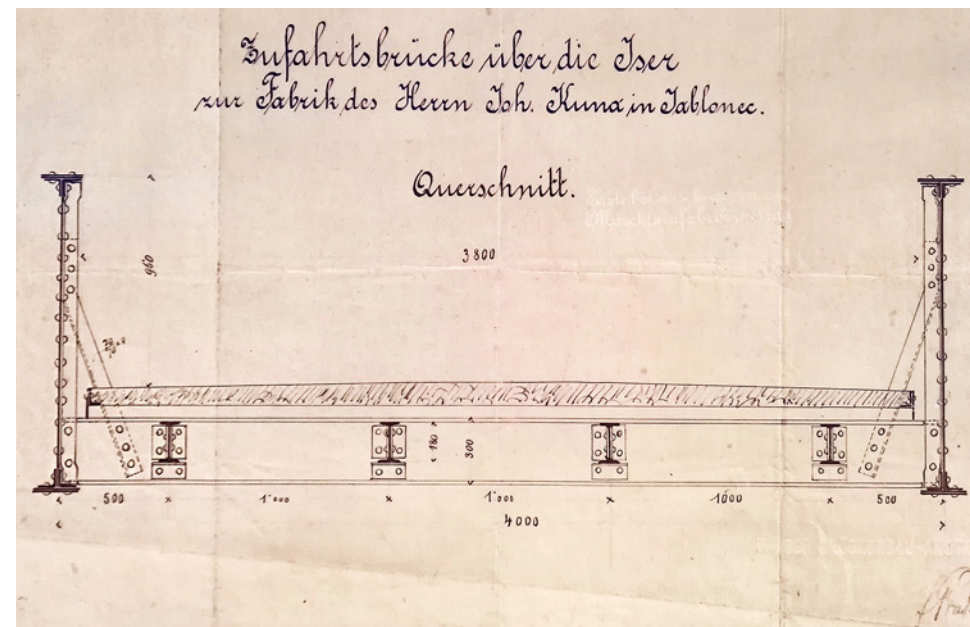 Zufahrtsbrücke über die Iser
zur Fabrik des Herrn Joh. Kunz in Jablonec.
Querschnitt.
3800
960
180
300
500 1000 1000 1000 500
4000